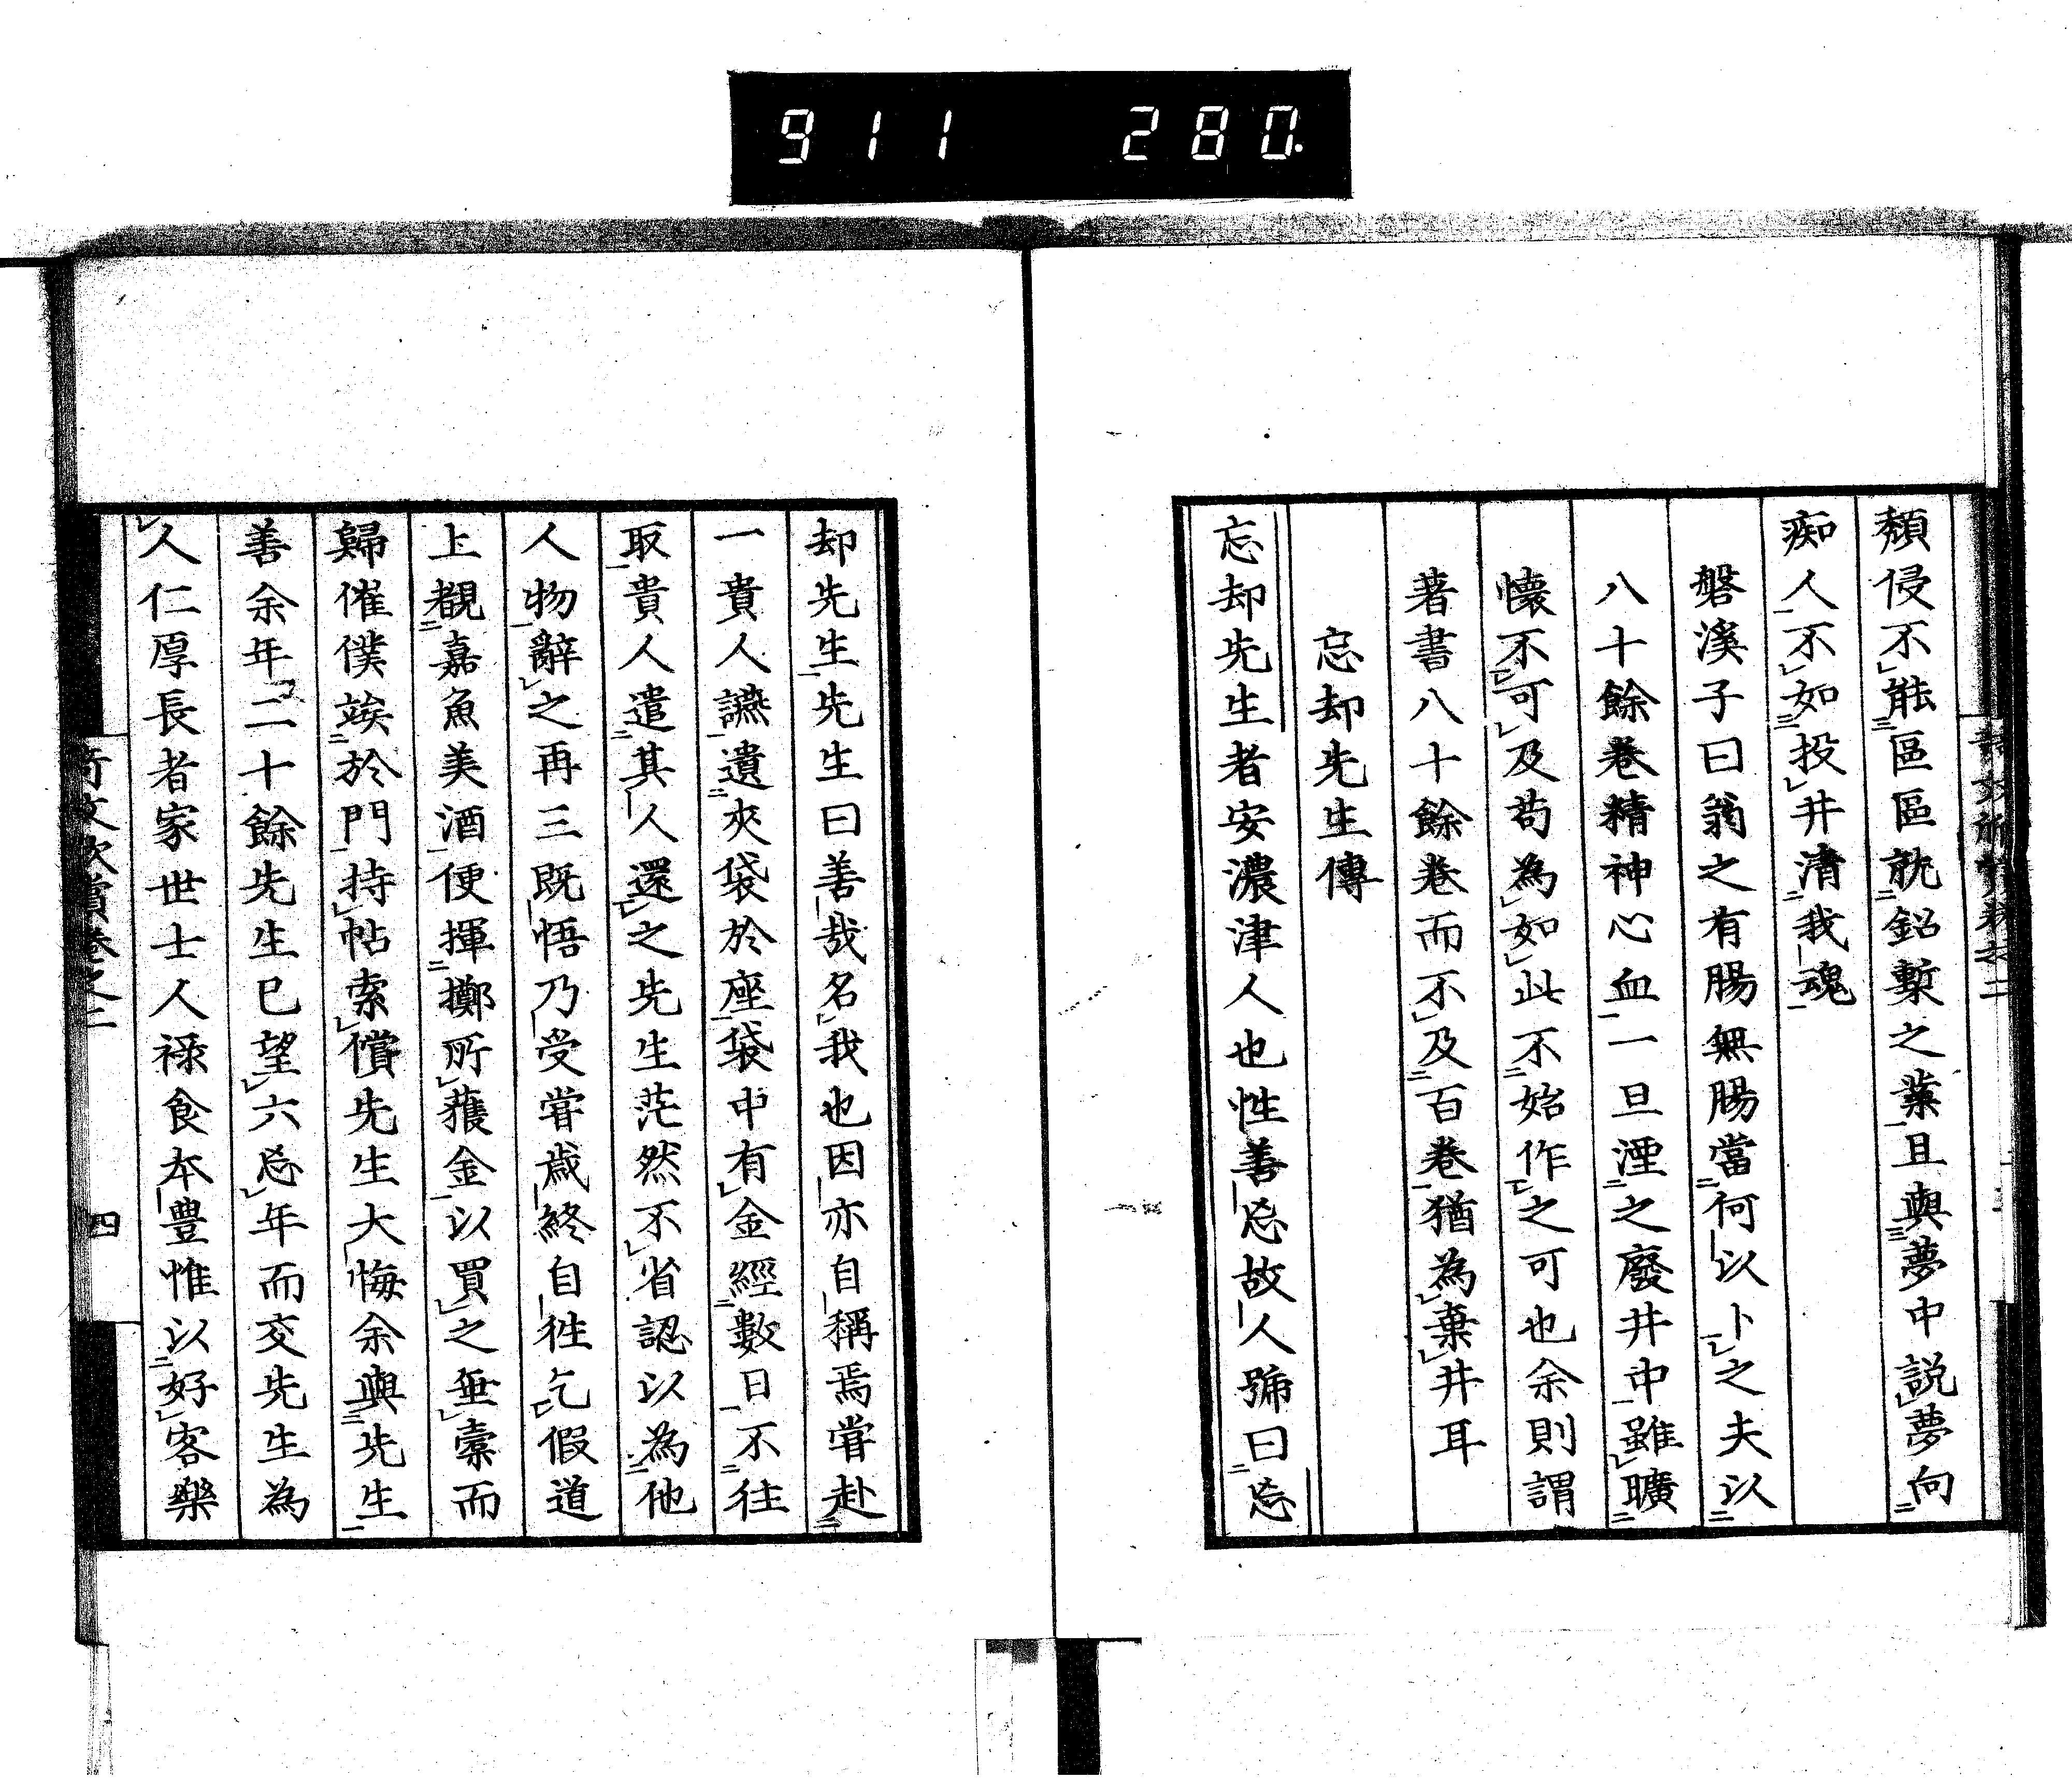 911 280
頽侵不能區區就鉛槧之業且與夢中説夢向
痴人不如投井清我魂
磐溪子曰翁之有腸無腸當何以卜之夫以
八十餘巻精神心血一旦湮之廢井中雖曠
懐不可及苟為如此不始作之可也余則謂
著書八十餘巻而不及百巻猶為棄井耳
忘却先生傳
忘却先生者安濃津人也性善忘故人號曰忘
却先生先生曰善哉名我也因亦自稱焉嘗赴
一貴人讌遺夾袋於座袋中有金經數日不往
取貴人遣其人還之先生茫然不省認以為他
人物辭之再三既悟乃受嘗歳終自徃乞假道
上覩嘉魚美酒便揮擲所獲金以買之垂橐而
歸催僕竢於門持帖索償先生大悔余與先生
善余年二十餘先生已望六忘年而交先生為
人仁厚長者家世士人禄食本豊惟以好客樂
奇文欣賞巻之二
四